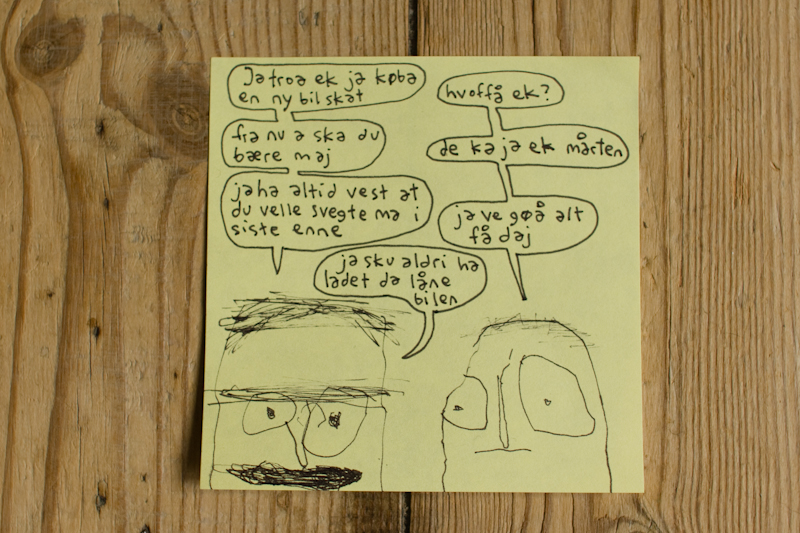 Ja troa ek ja køba
en ny bil skat
hvoffå ek?
fra nu a ska du
bære maj
de ka ja ek mårten
jaha altid vest at
du velle svegte ma i
siste enne
ja ve gøå alt
få daj
ja sku aldri ha
ladet da låne
bilen